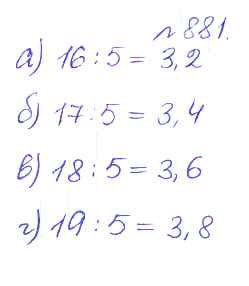 № 881.
а) 16 : 5 = 3,2
б) 17 : 5 = 3,4
в) 18 : 5 = 3,6
г) 19 : 5 = 3,8